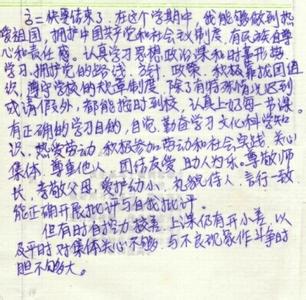 高二快要结束了。在这个学期中，我能够做到热
爱祖国，拥护中国共产党和社会主义制度，有民族自尊
心和责任感。认真学习思想政治课和时事形势
学习，拥护党的路线、方针、政策，积极靠拢团组
织，遵守学校的规章制度，除了有特殊情况迟到
或请假外，都能按时到校，认真上好每一节课。
有正确的学习目的，自觉、勤奋学习文化科学知
识，热爱劳动，积极参加劳动和社会实践，关心
集体，尊重他人，团结友爱，助人为乐。尊敬师
长，孝敬父母，爱护幼小，礼貌待人，言行一致
能正确开展批评与自我批评。
但有时自控力较差，上课仍有开小差，以
及平时对集体关心不够，与不良现象作斗争时
胆不够大。